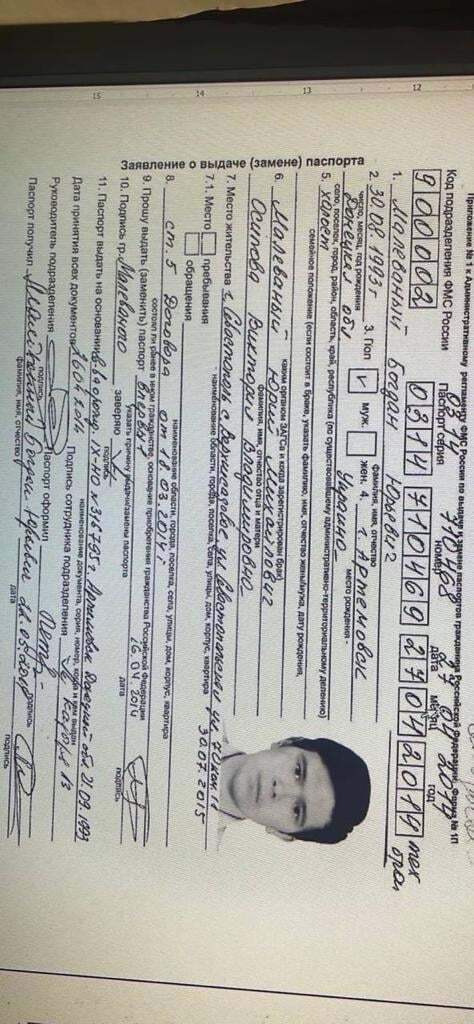 Приложение № 1 к Административному регламенту ФМС России по выдаче и замене паспортов гражданина Российской Федерации, Форма № 1П
0314 710468 27 04 2014
Код подразделения ФМС России Паспорт серия номер дата месяц год
900002 0314 710469 27042019 тех
Заявление о выдаче (замене) паспорта
1. Малеванный Богдан Юрьевич
фамилия, имя, отчество
2. 30.08.1993г 3. Пол V муж. жен. 4. г. Артемовск
число, месяц, год рождения место рождения -
Донецкая обл Украина
село, поселок, город, район, область, край, республика (по существовавшему административно-территориальному делению)
5. холост
семейное положение (если состоит в браке, указать фамилию, имя, отчество жены/мужа, дату рождения,
каким органом ЗАГСа и когда зарегистрирован брак)
6. Малеваный Юрий Михайлович
фамилия, имя, отчество отца и матери
Осипова Виктория Владимировна
7. Место жительства г. Севастополь
- наименование области, города, поселка, села, улицы, дом, корпус, квартира
7.1. Место пребывания 30.07.2015
обращения
наименование области, города, поселка, села, улицы, дом, корпус, квартира
8. ст. 5 Договора от 18.03.2014 г
состоял ли ранее в ином гражданстве, основание приобретения гражданства Российской Федерации
9. Прошу выдать (заменить) паспорт впервые 26.04.2014
указать причину выдачи/замены паспорта дата подпись
10. Подпись гр. Малеваного заверяю
подпись
11. Паспорт выдать на основании IX-НО № 316795 г. Артемовск Донецкой обл. 21.09.1993
наименование документа, серия, номер, когда и кем выдан
Дата принятия всех документов 26.04.2014 Подпись сотрудника подразделения
Руководитель подразделения Паспорт оформил
подпись подпись
Паспорт получил Богдан Юрьевич
фамилия, имя, отчество дата подпись